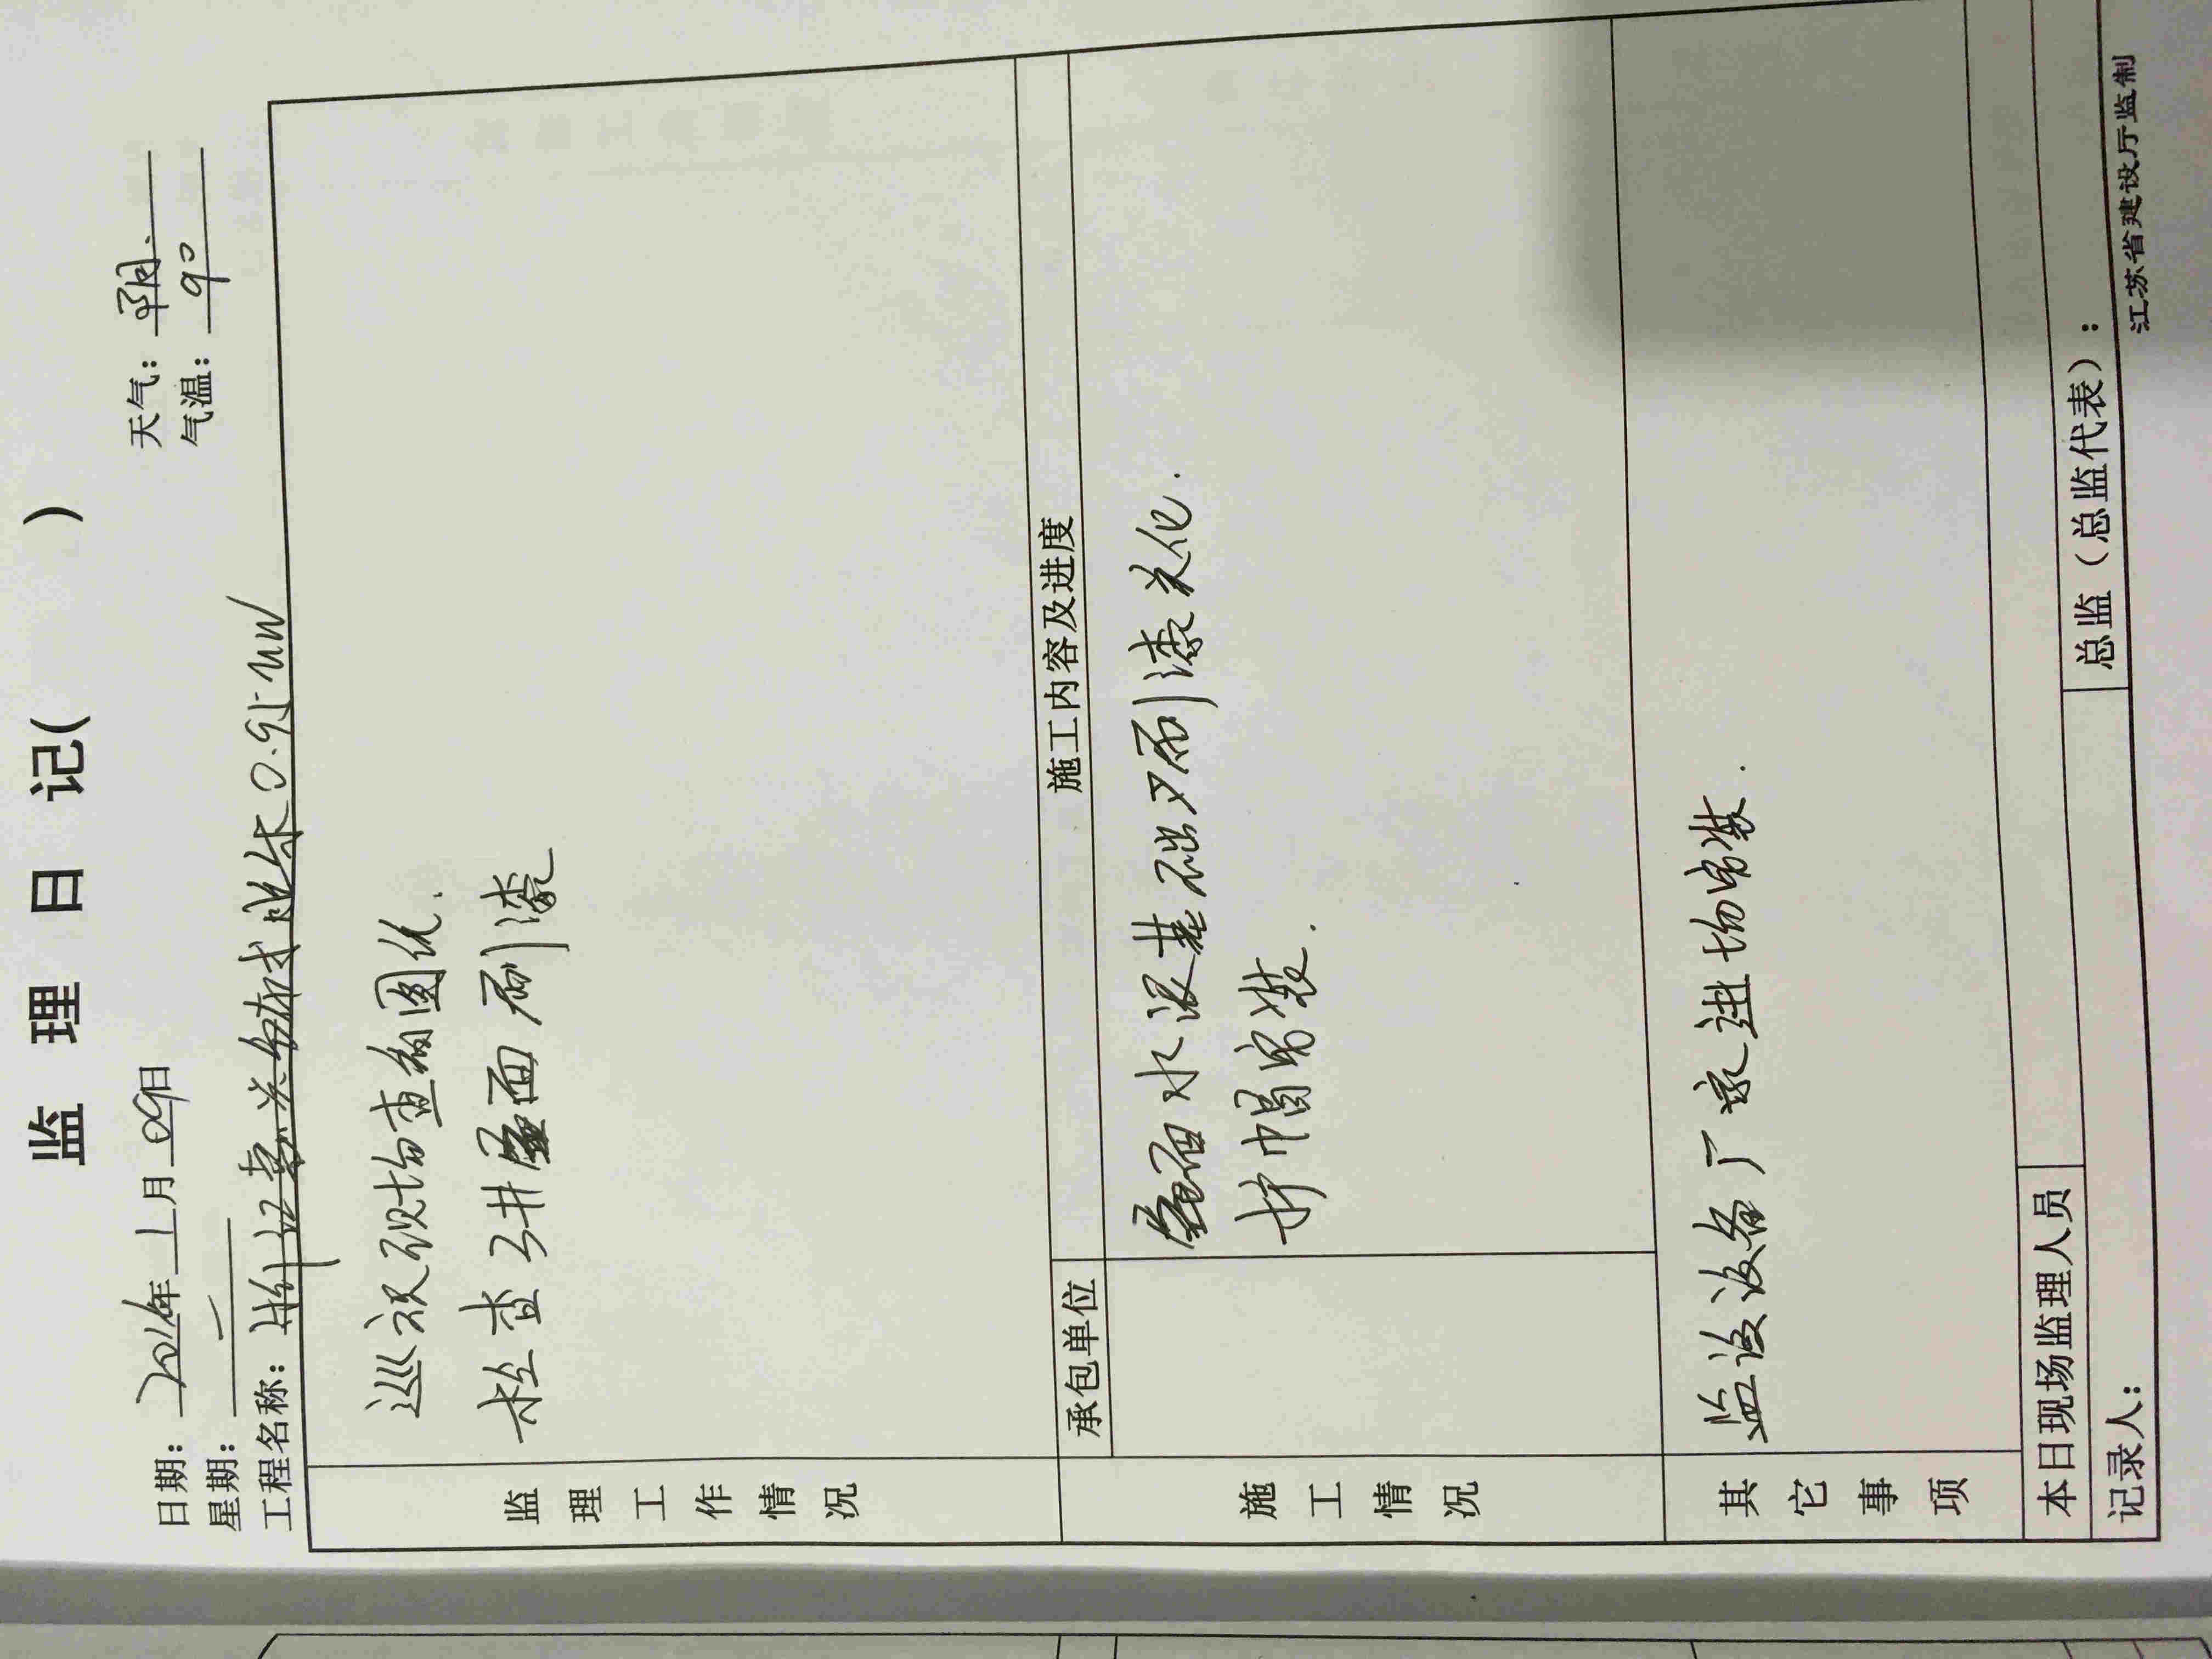 监 理 日 记( )
日期: 2016年 1月 09日 天气: 阴.
星期: 一 气温: 9°
工程名称: 0.95MW
监理工作情况
巡视现场查看图纸.
检查引井屋面刷漆
施工情况
承包单位 施工内容及进度
屋面水泥基础刷漆美化.
护帽安装.
其它事项
监设设备厂家进场安装.
本日现场监理人员
记录人: 总监(总监代表):
江苏省建设厅监制